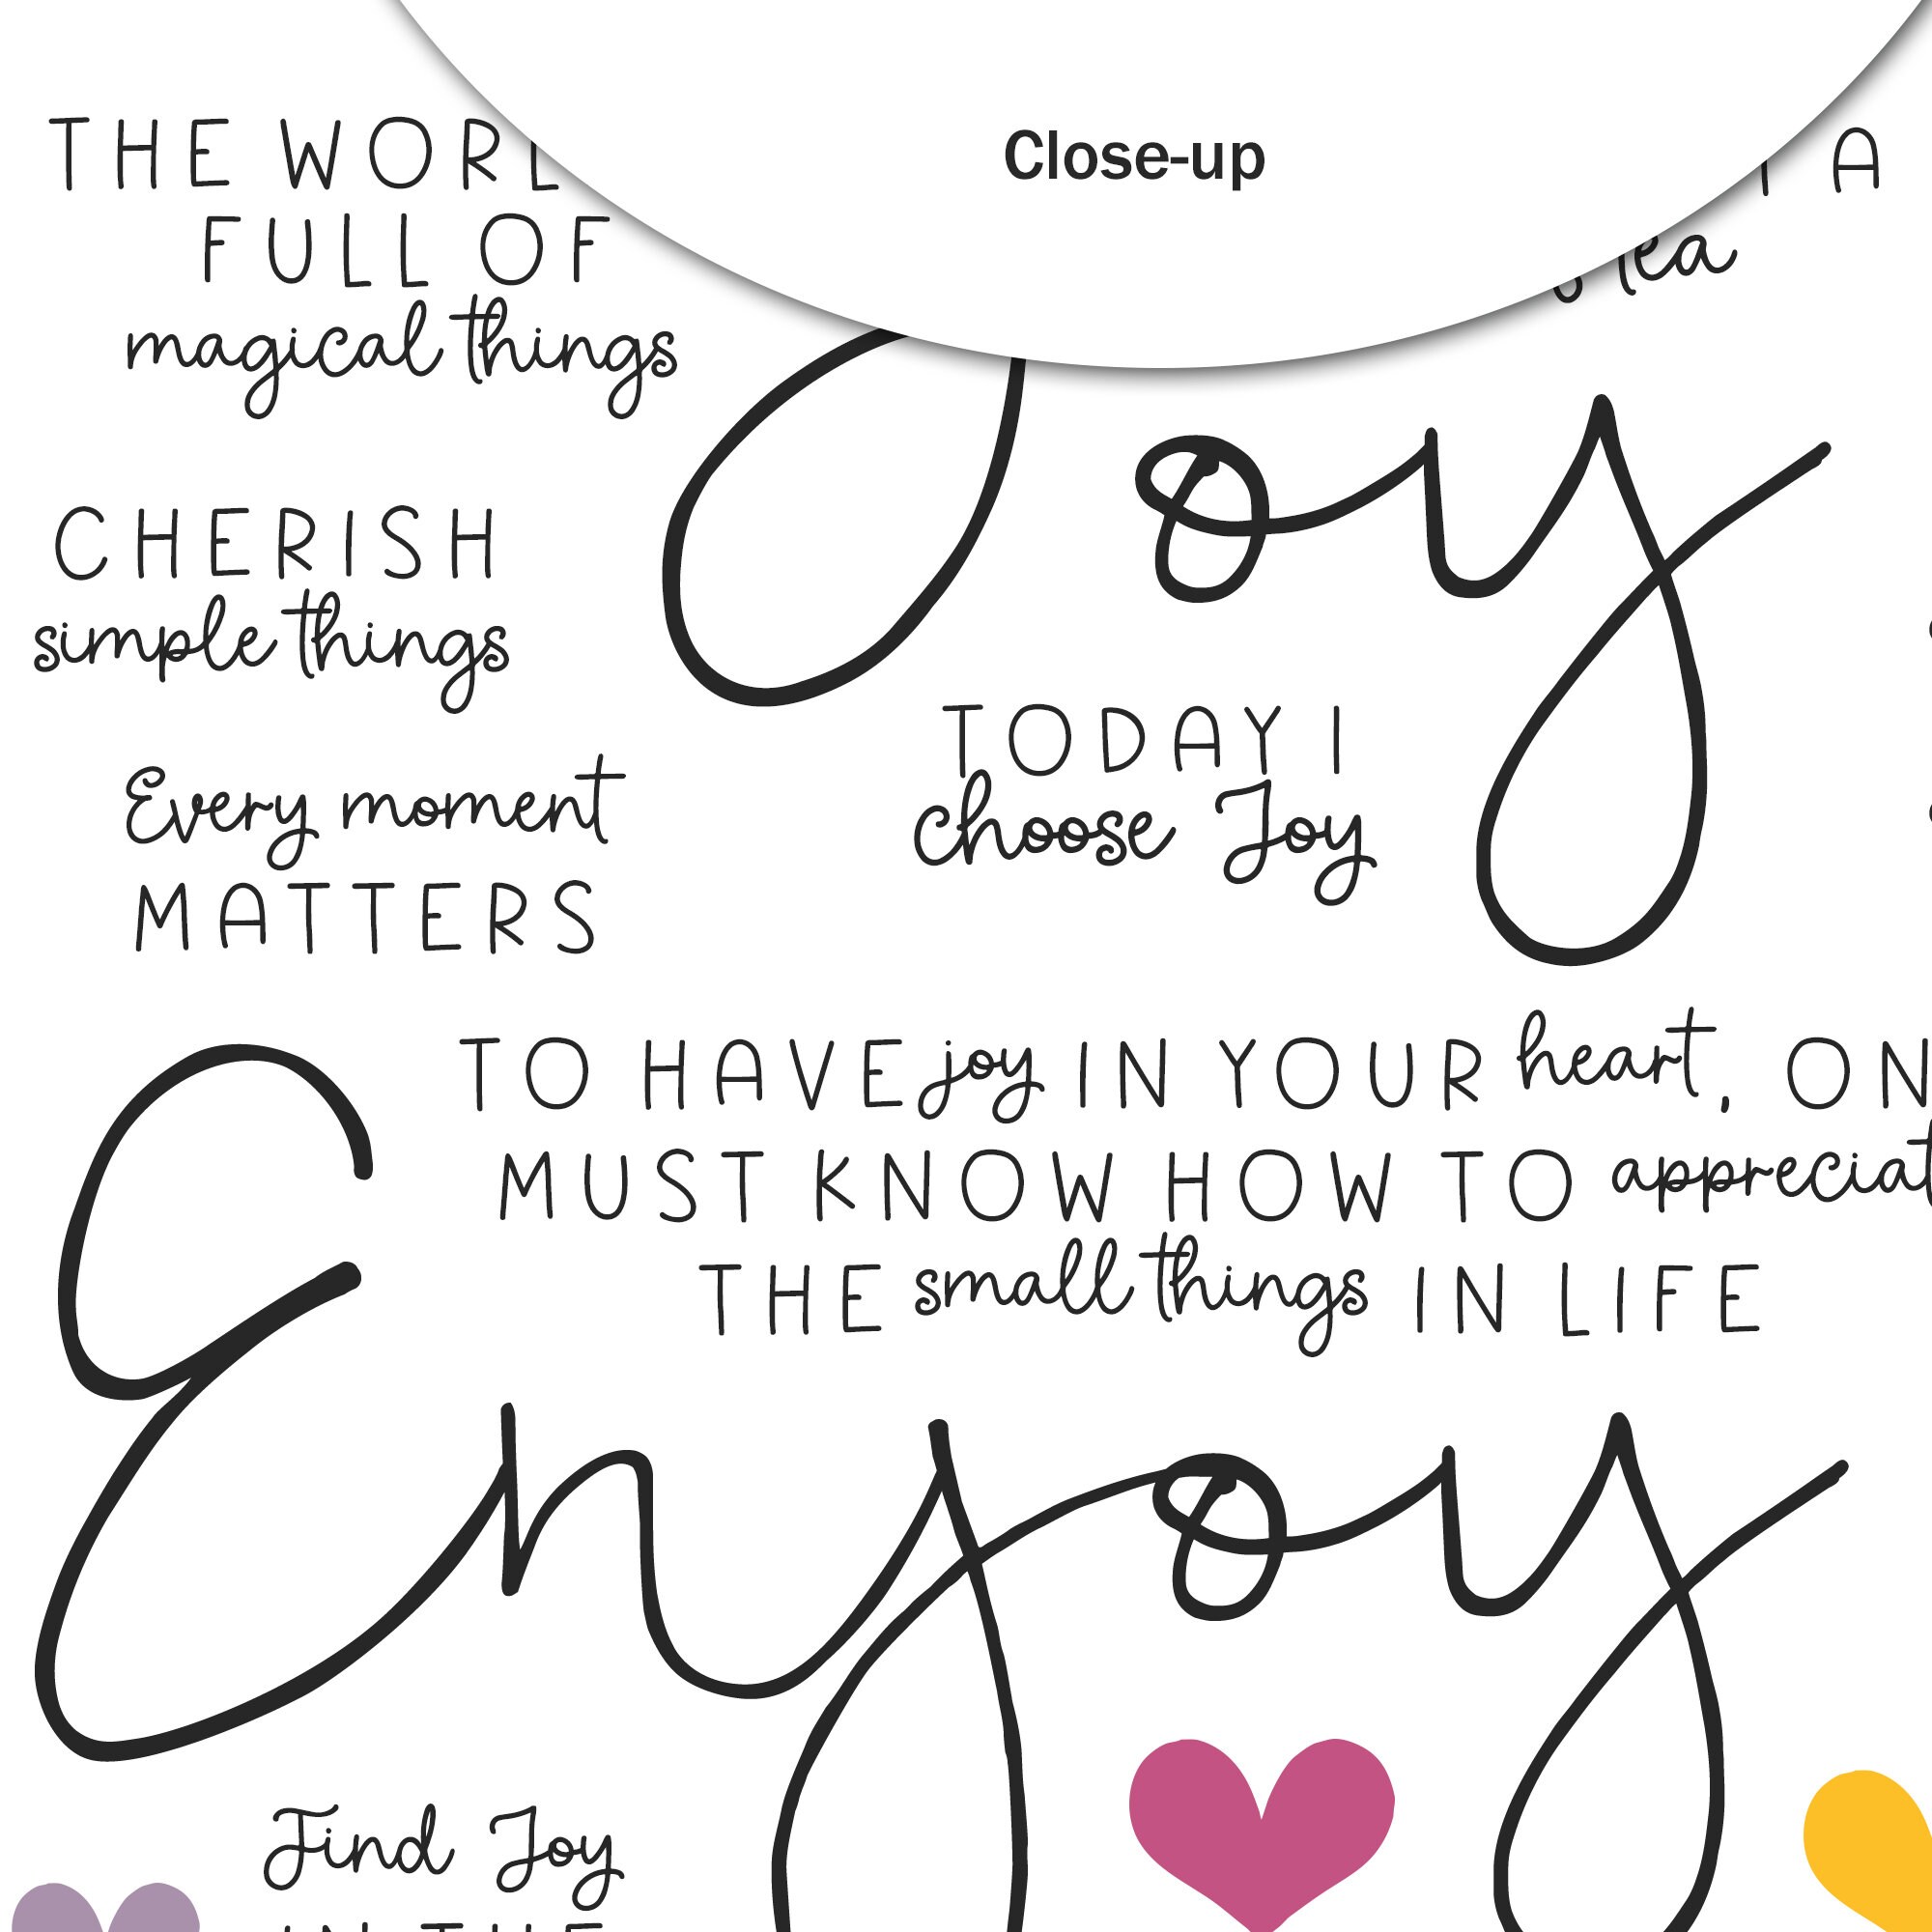 Close-up
THE WORL
A
FULL OF
lea
magical things
Joy
CHERISH
simple things
TODAY I
choose Joy
Every moment
MATTERS
TO HAVE joy IN YOUR heart, ON
MUST KNOW HOW TO appreciat
THE small things IN LIFE
Enjoy
Find Joy
IN THE